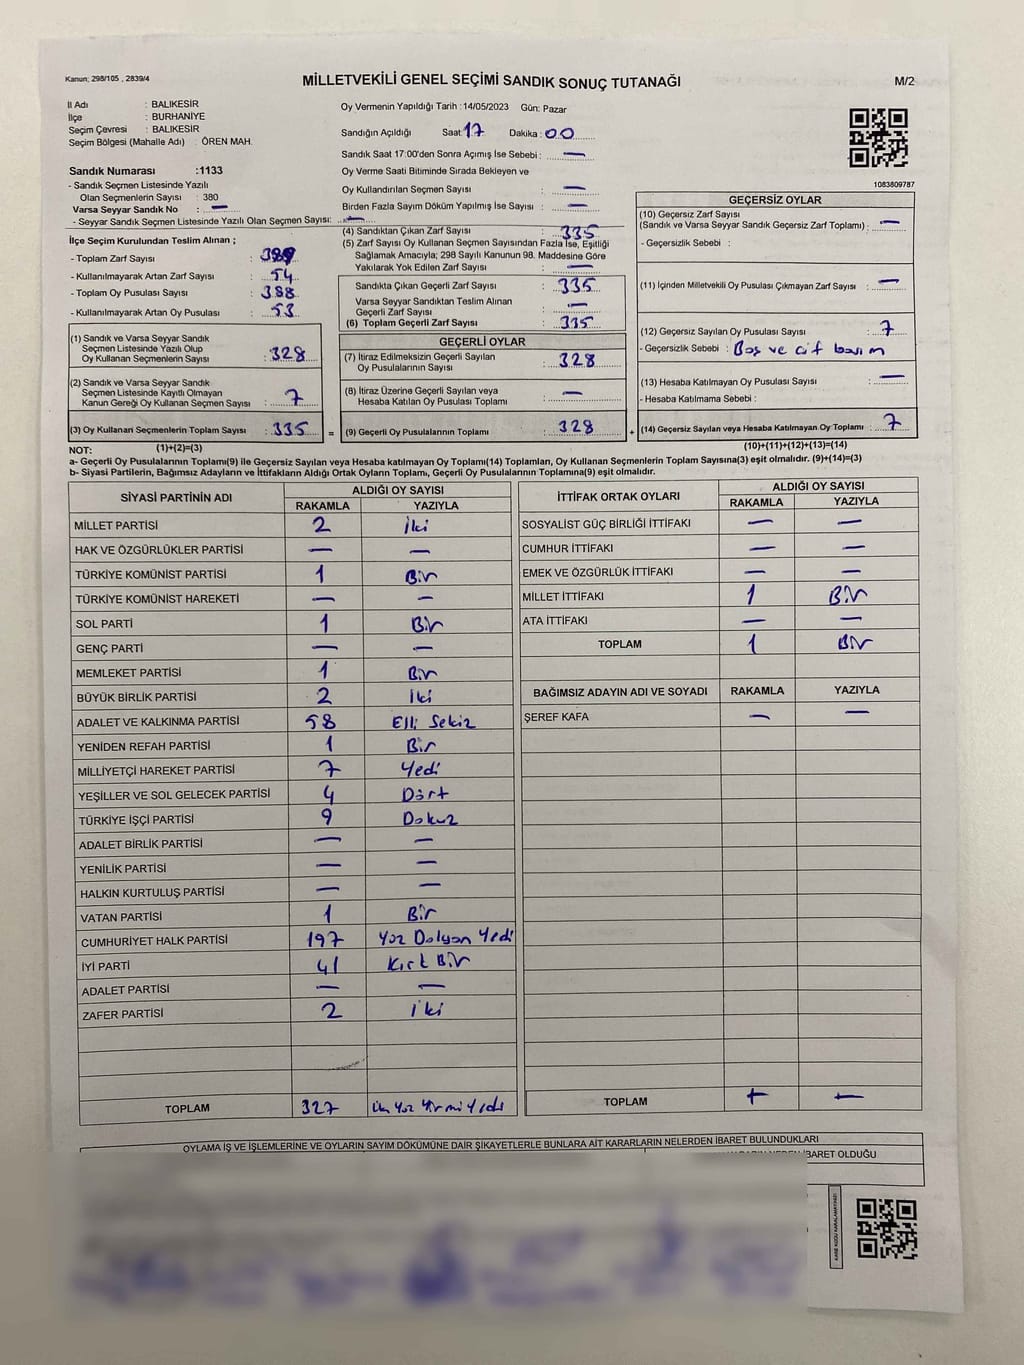 Kanun; 298/105 , 2839/4
MİLLETVEKİLİ GENEL SEÇİMİ SANDIK SONUÇ TUTANAĞI
M/2
İl Adı : BALIKESİR
İlçe : BURHANİYE
Seçim Çevresi : BALIKESİR
Seçim Bölgesi (Mahalle Adı) : ÖREN MAH.
Oy Vermenin Yapıldığı Tarih : 14/05/2023 Gün: Pazar
Sandığın Açıldığı Saat: 17 Dakika : 00
Sandık Saat 17:00'den Sonra Açımış İse Sebebi : —
Oy Verme Saati Bitiminde Sırada Bekleyen ve
Oy Kullandırılan Seçmen Sayısı : —
Birden Fazla Sayım Döküm Yapılmış İse Sayısı : —
Sandık Numarası :1133
- Sandık Seçmen Listesinde Yazılı
Olan Seçmenlerin Sayısı : 380
Varsa Seyyar Sandık No : —
- Seyyar Sandık Seçmen Listesinde Yazılı Olan Seçmen Sayısı: —
1083809787
İlçe Seçim Kurulundan Teslim Alınan ;
- Toplam Zarf Sayısı : 389
- Kullanılmayarak Artan Zarf Sayısı : 54
- Toplam Oy Pusulası Sayısı : 388
- Kullanılmayarak Artan Oy Pusulası : 53
(1) Sandık ve Varsa Seyyar Sandık
Seçmen Listesinde Yazılı Olup
Oy Kullanan Seçmenlerin Sayısı : 328
(2) Sandık ve Varsa Seyyar Sandık
Seçmen Listesinde Kayıtlı Olmayan
Kanun Gereği Oy Kullanan Seçmen Sayısı : 7
(3) Oy Kullanan Seçmenlerin Toplam Sayısı : 335 =
(4) Sandıktan Çıkan Zarf Sayısı : 335
(5) Zarf Sayısı Oy Kullanan Seçmen Sayısından Fazla İse, Eşitliği
Sağlamak Amacıyla; 298 Sayılı Kanunun 98. Maddesine Göre
Yakılarak Yok Edilen Zarf Sayısı : —
Sandıkta Çıkan Geçerli Zarf Sayısı : 335
Varsa Seyyar Sandıktan Teslim Alınan
Geçerli Zarf Sayısı : —
(6) Toplam Geçerli Zarf Sayısı : 335
GEÇERLİ OYLAR
(7) İtiraz Edilmeksizin Geçerli Sayılan
Oy Pusulalarının Sayısı : 328
(8) İtiraz Üzerine Geçerli Sayılan veya
Hesaba Katılan Oy Pusulası Toplamı : —
(9) Geçerli Oy Pusulalarının Toplamı : 328 +
GEÇERSİZ OYLAR
(10) Geçersiz Zarf Sayısı
(Sandık ve Varsa Seyyar Sandık Geçersiz Zarf Toplamı) : —
- Geçersizlik Sebebi :
(11) İçinden Milletvekili Oy Pusulası Çıkmayan Zarf Sayısı : —
(12) Geçersiz Sayılan Oy Pusulası Sayısı : 7
- Geçersizlik Sebebi : Boş ve çift basım
(13) Hesaba Katılmayan Oy Pusulası Sayısı : —
- Hesaba Katılmama Sebebi :
(14) Geçersiz Sayılan veya Hesaba Katılmayan Oy Toplamı : 7
NOT: (1)+(2)=(3) (10)+(11)+(12)+(13)=(14)
a- Geçerli Oy Pusulalarının Toplamı(9) ile Geçersiz Sayılan veya Hesaba katılmayan Oy Toplamı(14) Toplamları, Oy Kullanan Seçmenlerin Toplam Sayısına(3) eşit olmalıdır. (9)+(14)=(3)
b- Siyasi Partilerin, Bağımsız Adayların ve İttifakların Aldığı Ortak Oyların Toplamı, Geçerli Oy Pusulalarının Toplamına(9) eşit olmalıdır.
SİYASİ PARTİNİN ADI ALDIĞI OY SAYISI
RAKAMLA YAZIYLA
MİLLET PARTİSİ 2 İki
HAK VE ÖZGÜRLÜKLER PARTİSİ — —
TÜRKİYE KOMÜNİST PARTİSİ 1 Bir
TÜRKİYE KOMÜNİST HAREKETİ — —
SOL PARTİ 1 Bir
GENÇ PARTİ — —
MEMLEKET PARTİSİ 1 Bir
BÜYÜK BİRLİK PARTİSİ 2 İki
ADALET VE KALKINMA PARTİSİ 58 Elli Sekiz
YENİDEN REFAH PARTİSİ 1 Bir
MİLLİYETÇİ HAREKET PARTİSİ 7 Yedi
YEŞİLLER VE SOL GELECEK PARTİSİ 4 Dört
TÜRKİYE İŞÇİ PARTİSİ 9 Dokuz
ADALET BİRLİK PARTİSİ — —
YENİLİK PARTİSİ — —
HALKIN KURTULUŞ PARTİSİ — —
VATAN PARTİSİ 1 Bir
CUMHURİYET HALK PARTİSİ 197 Yüz Doksan Yedi
İYİ PARTİ 41 Kırk Bir
ADALET PARTİSİ — —
ZAFER PARTİSİ 2 İki
TOPLAM 327 Üç Yüz Yirmi Yedi
İTTİFAK ORTAK OYLARI ALDIĞI OY SAYISI
RAKAMLA YAZIYLA
SOSYALİST GÜÇ BİRLİĞİ İTTİFAKI — —
CUMHUR İTTİFAKI — —
EMEK VE ÖZGÜRLÜK İTTİFAKI — —
MİLLET İTTİFAKI 1 Bir
ATA İTTİFAKI — —
TOPLAM 1 Bir
BAĞIMSIZ ADAYIN ADI VE SOYADI RAKAMLA YAZIYLA
ŞEREF KAFA — —
TOPLAM — —
OYLAMA İŞ VE İŞLEMLERİNE VE OYLARIN SAYIM DÖKÜMÜNE DAİR ŞİKAYETLERLE BUNLARA AİT KARARLARIN NELERDEN İBARET BULUNDUKLARI
İBARET OLDUĞU